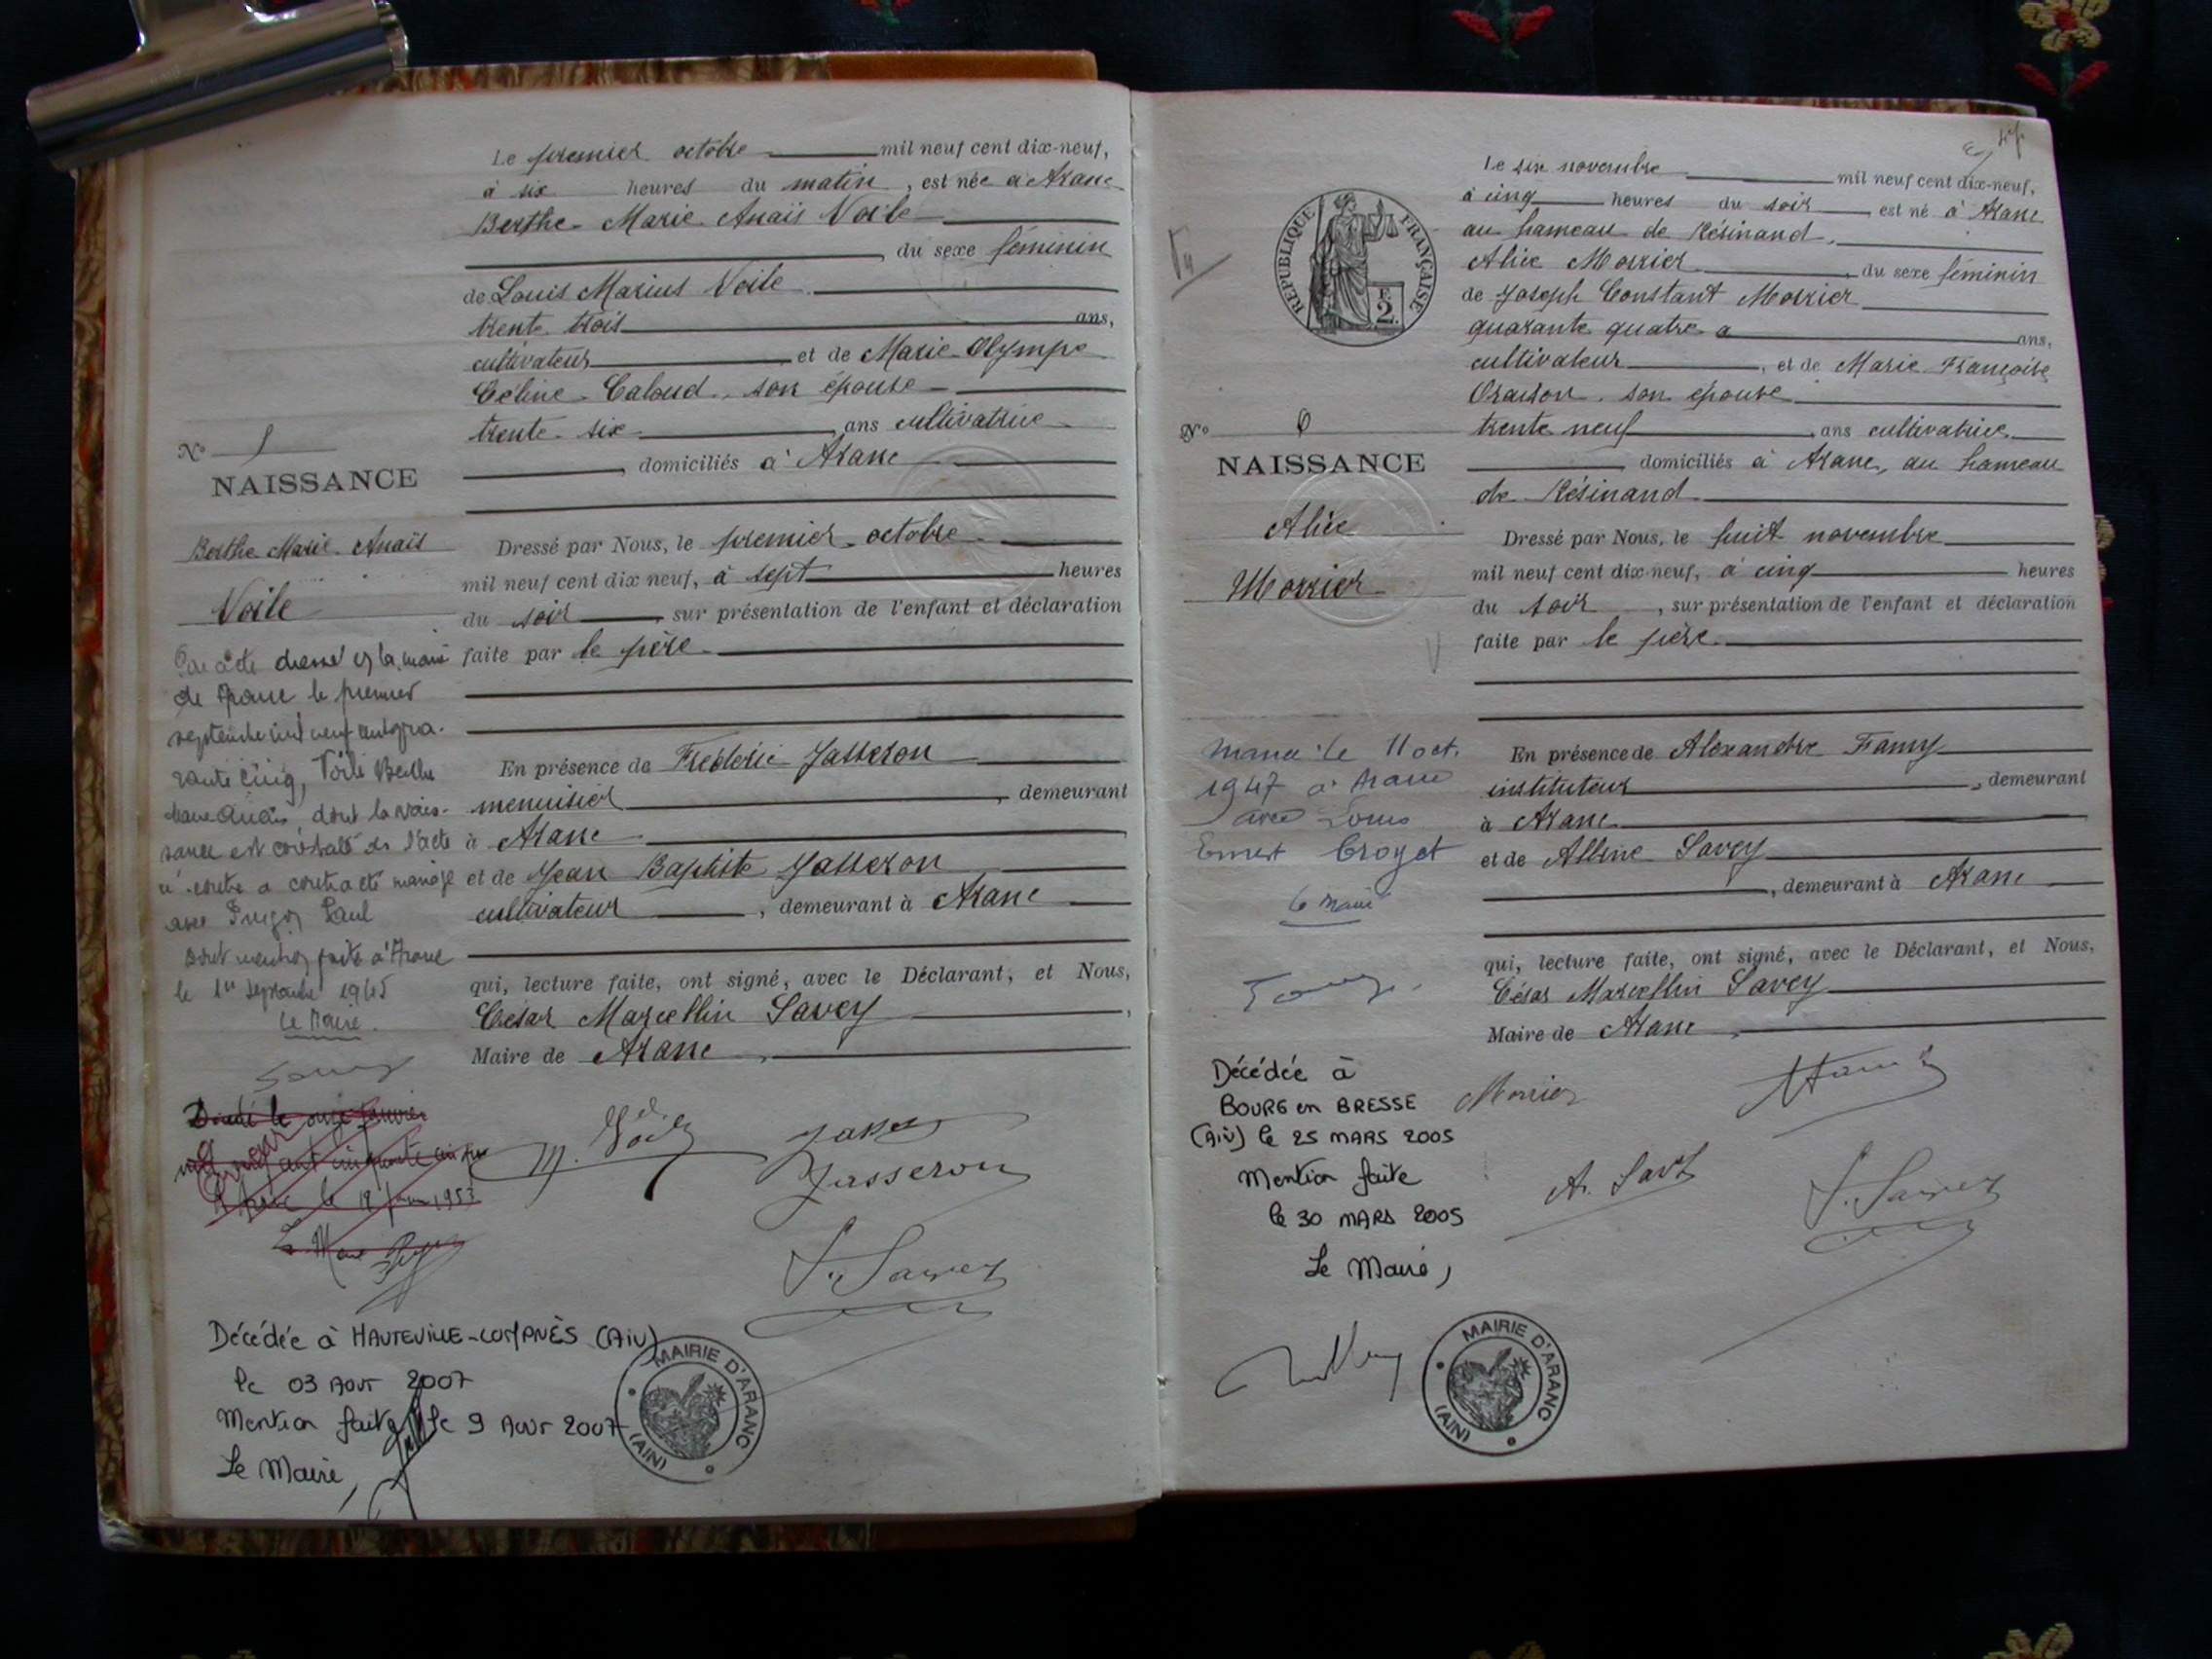 Le premier octobre mil neuf cent dix-neuf,
à six heures du matin, est née à Aranc
Berthe Marie Anaïs Voile
du sexe féminin
de Louis Marius Voile
trente trois ans,
cultivateur et de Marie Olympe
Céline Caloud, son épouse
trente six ans cultivatrice
domiciliés à Aranc
N°
NAISSANCE
Berthe Marie Anaïs
Voile
Dressé par Nous, le premier octobre
mil neuf cent dix neuf, à sept heures
du soir, sur présentation de l'enfant et déclaration
faite par le père
En présence de Frédéric Jasseron
menuisier, demeurant
à Aranc
et de Jean Baptiste Jasseron
cultivateur, demeurant à Aranc
qui, lecture faite, ont signé, avec le Déclarant, et Nous,
César Marcellin Savey
Maire de Aranc
acte dressé la mairie
de Aranc le premier
septembre mil neuf cent qua-
rante cinq, Voile Berthe
Marie Anaïs dont la nais-
sance est constaté l'acte
ci-contre a contracté mariage
avec Paul
dont mention faite à Aranc
le 1er septembre 1945
Le Maire.
M. Voile
Jasseron
Savey
Le Maire
Décédée à HAUTEVILLE-LOMPNÈS (Ain)
le 03 AOUT 2007
Mention faite le 9 AOUT 2007
Le Maire,
MAIRIE D'ARANC
(AIN)
Le six novembre mil neuf cent dix-neuf,
à cinq heures du soir, est né à Aranc
au hameau de Résinand,
Alice Morrier, du sexe féminin
de Joseph Constant Morrier
quarante quatre ans,
cultivateur, et de Marie Françoise
Oraison, son épouse
trente neuf ans cultivatrice
domiciliés à Aranc, au hameau
de Résinand
RÉPUBLIQUE FRANÇAISE
2
N° 6
NAISSANCE
Alice
Morrier
Dressé par Nous, le huit novembre
mil neuf cent dix-neuf, à cinq heures
du soir, sur présentation de l'enfant et déclaration
faite par le père.
En présence de Alexandre Famy
instituteur, demeurant
à Aranc
et de Albine Savey
, demeurant à Aranc
qui, lecture faite, ont signé, avec le Déclarant, et Nous,
César Marcellin Savey
Maire de Aranc
Mariée le 11 oct.
1947 à Aranc
avec Louis
Ernest Croyet
Le Maire
Morrier
A. Savey
Savey
Décédée à
BOURG en BRESSE
(Ain) le 25 MARS 2005
Mention faite
le 30 MARS 2005
Le Maire,
MAIRIE D'ARANC
(AIN)